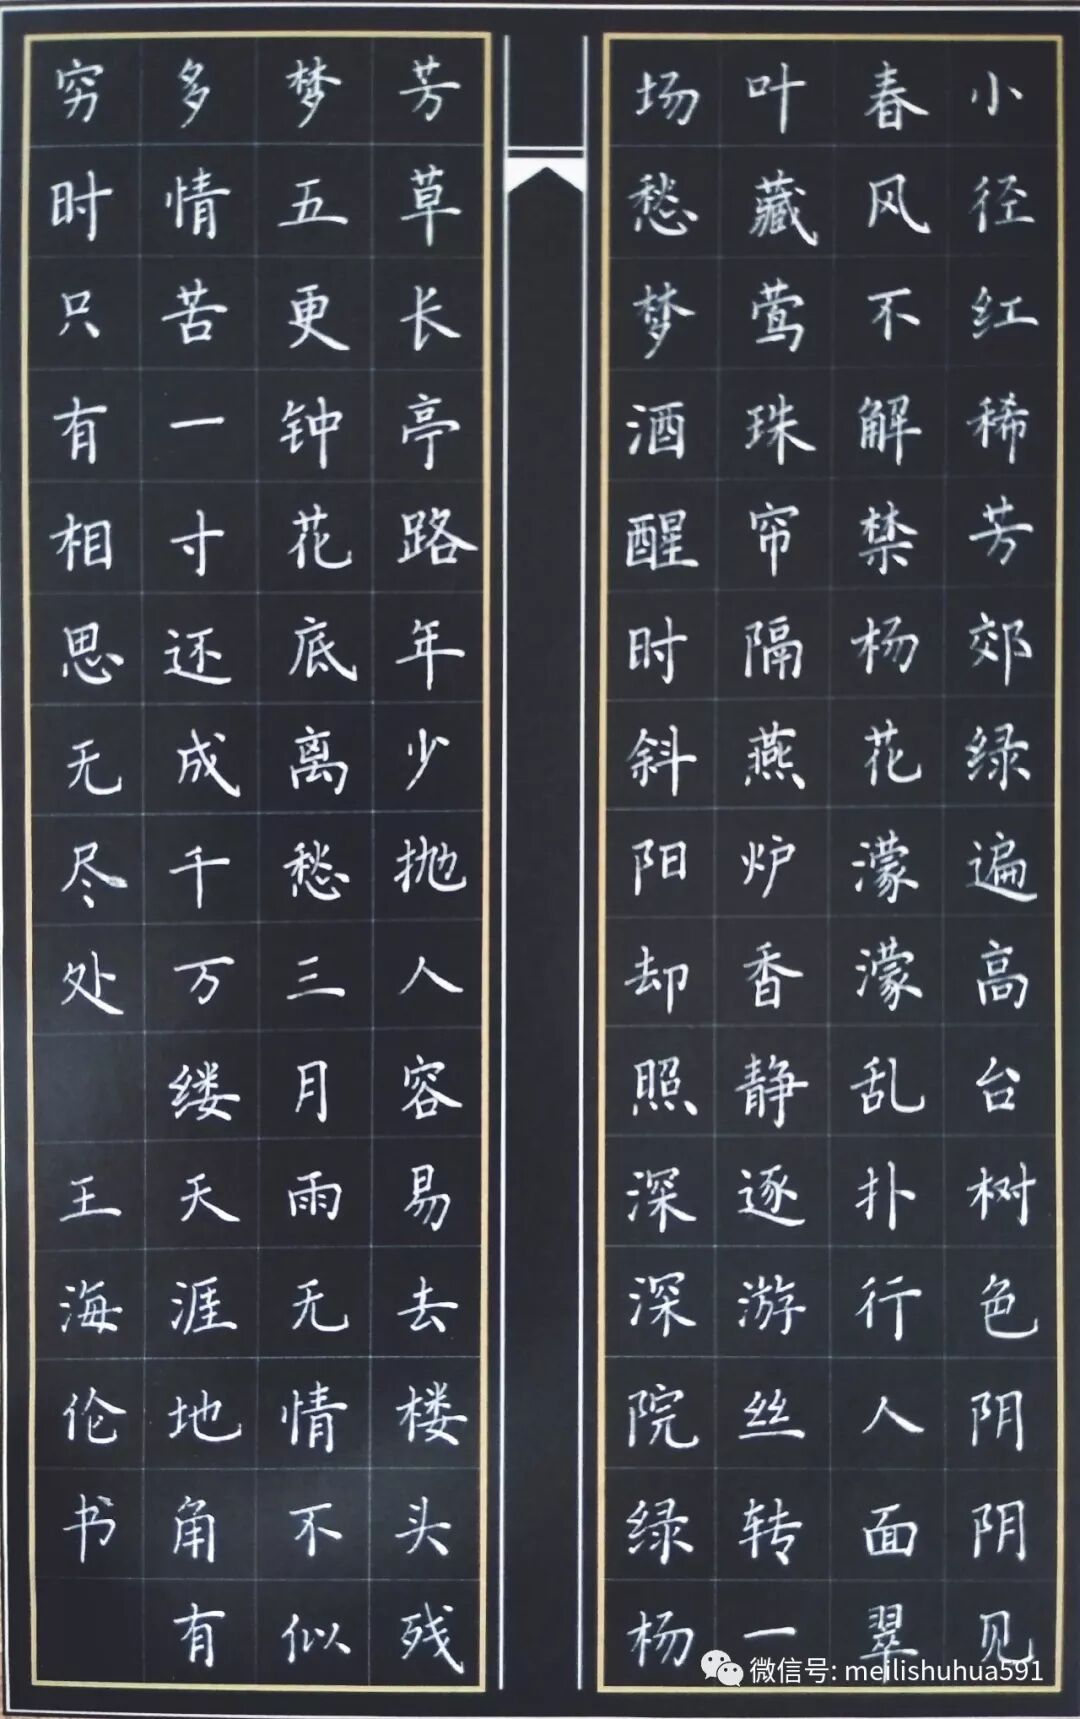 小径红稀芳郊绿遍高台树色阴阴见
春风不解禁杨花濛濛乱扑行人面翠
叶藏莺珠帘隔燕炉香静逐游丝转一
场愁梦酒醒时斜阳却照深深院绿杨
芳草长亭路年少抛人容易去楼头残
梦五更钟花底离愁三月雨无情不似
多情苦一寸还成千万缕天涯地角有
穷时只有相思无尽处
王海伦书
微信号: meilishuhua591